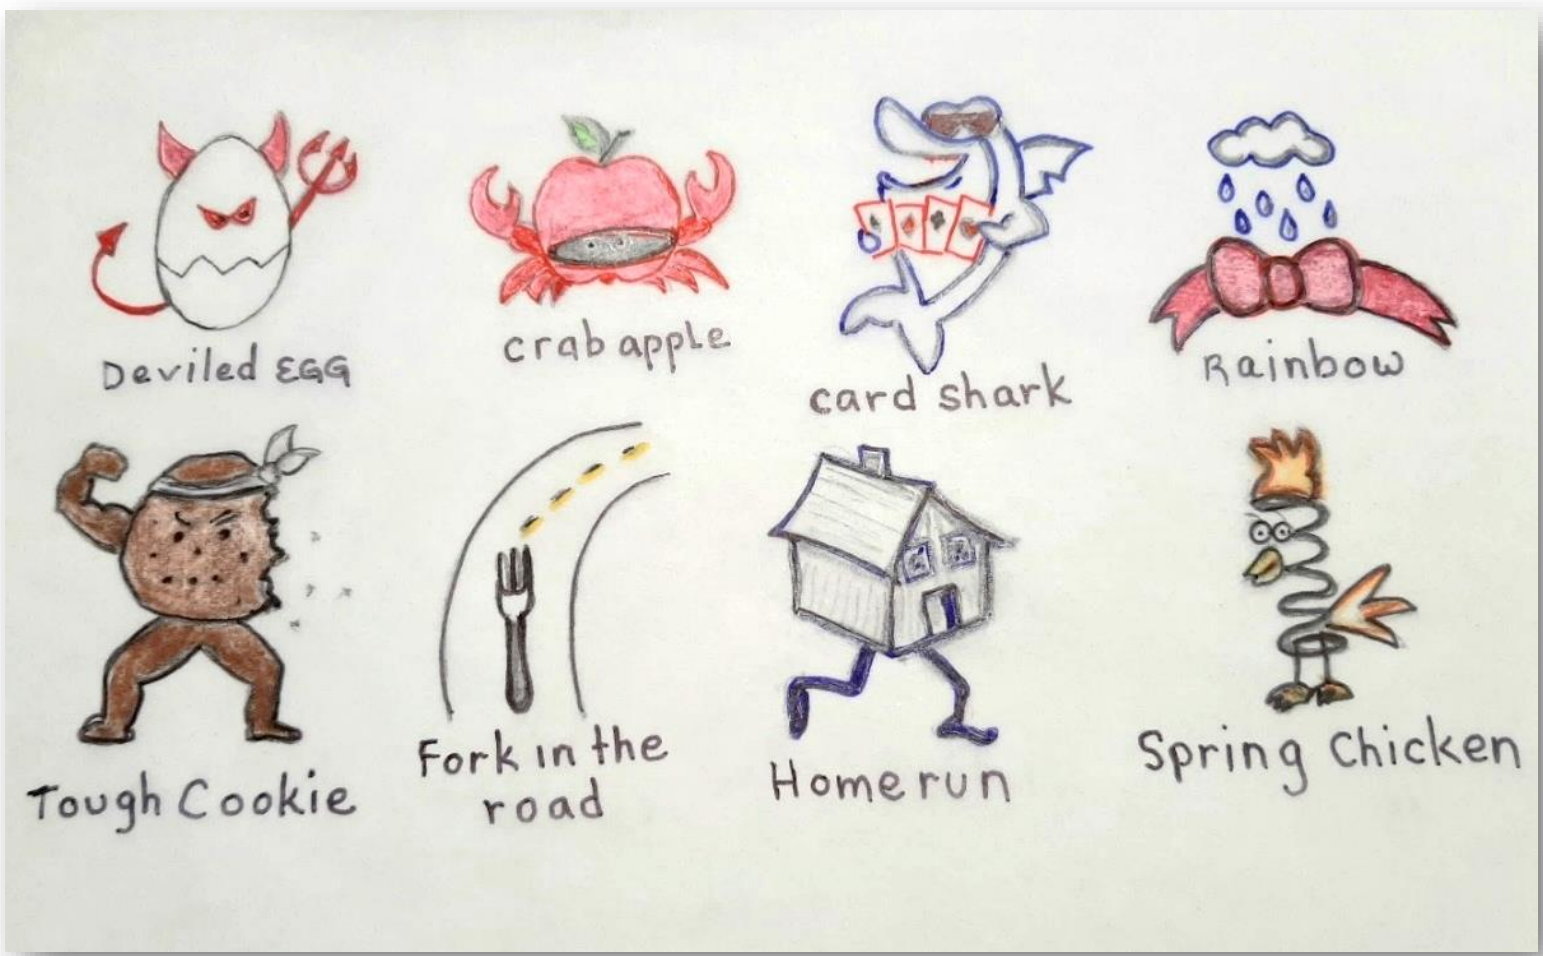 Deviled EGG
crab apple
card shark
Rainbow
Tough Cookie
Fork in the
road
Home run
Spring Chicken